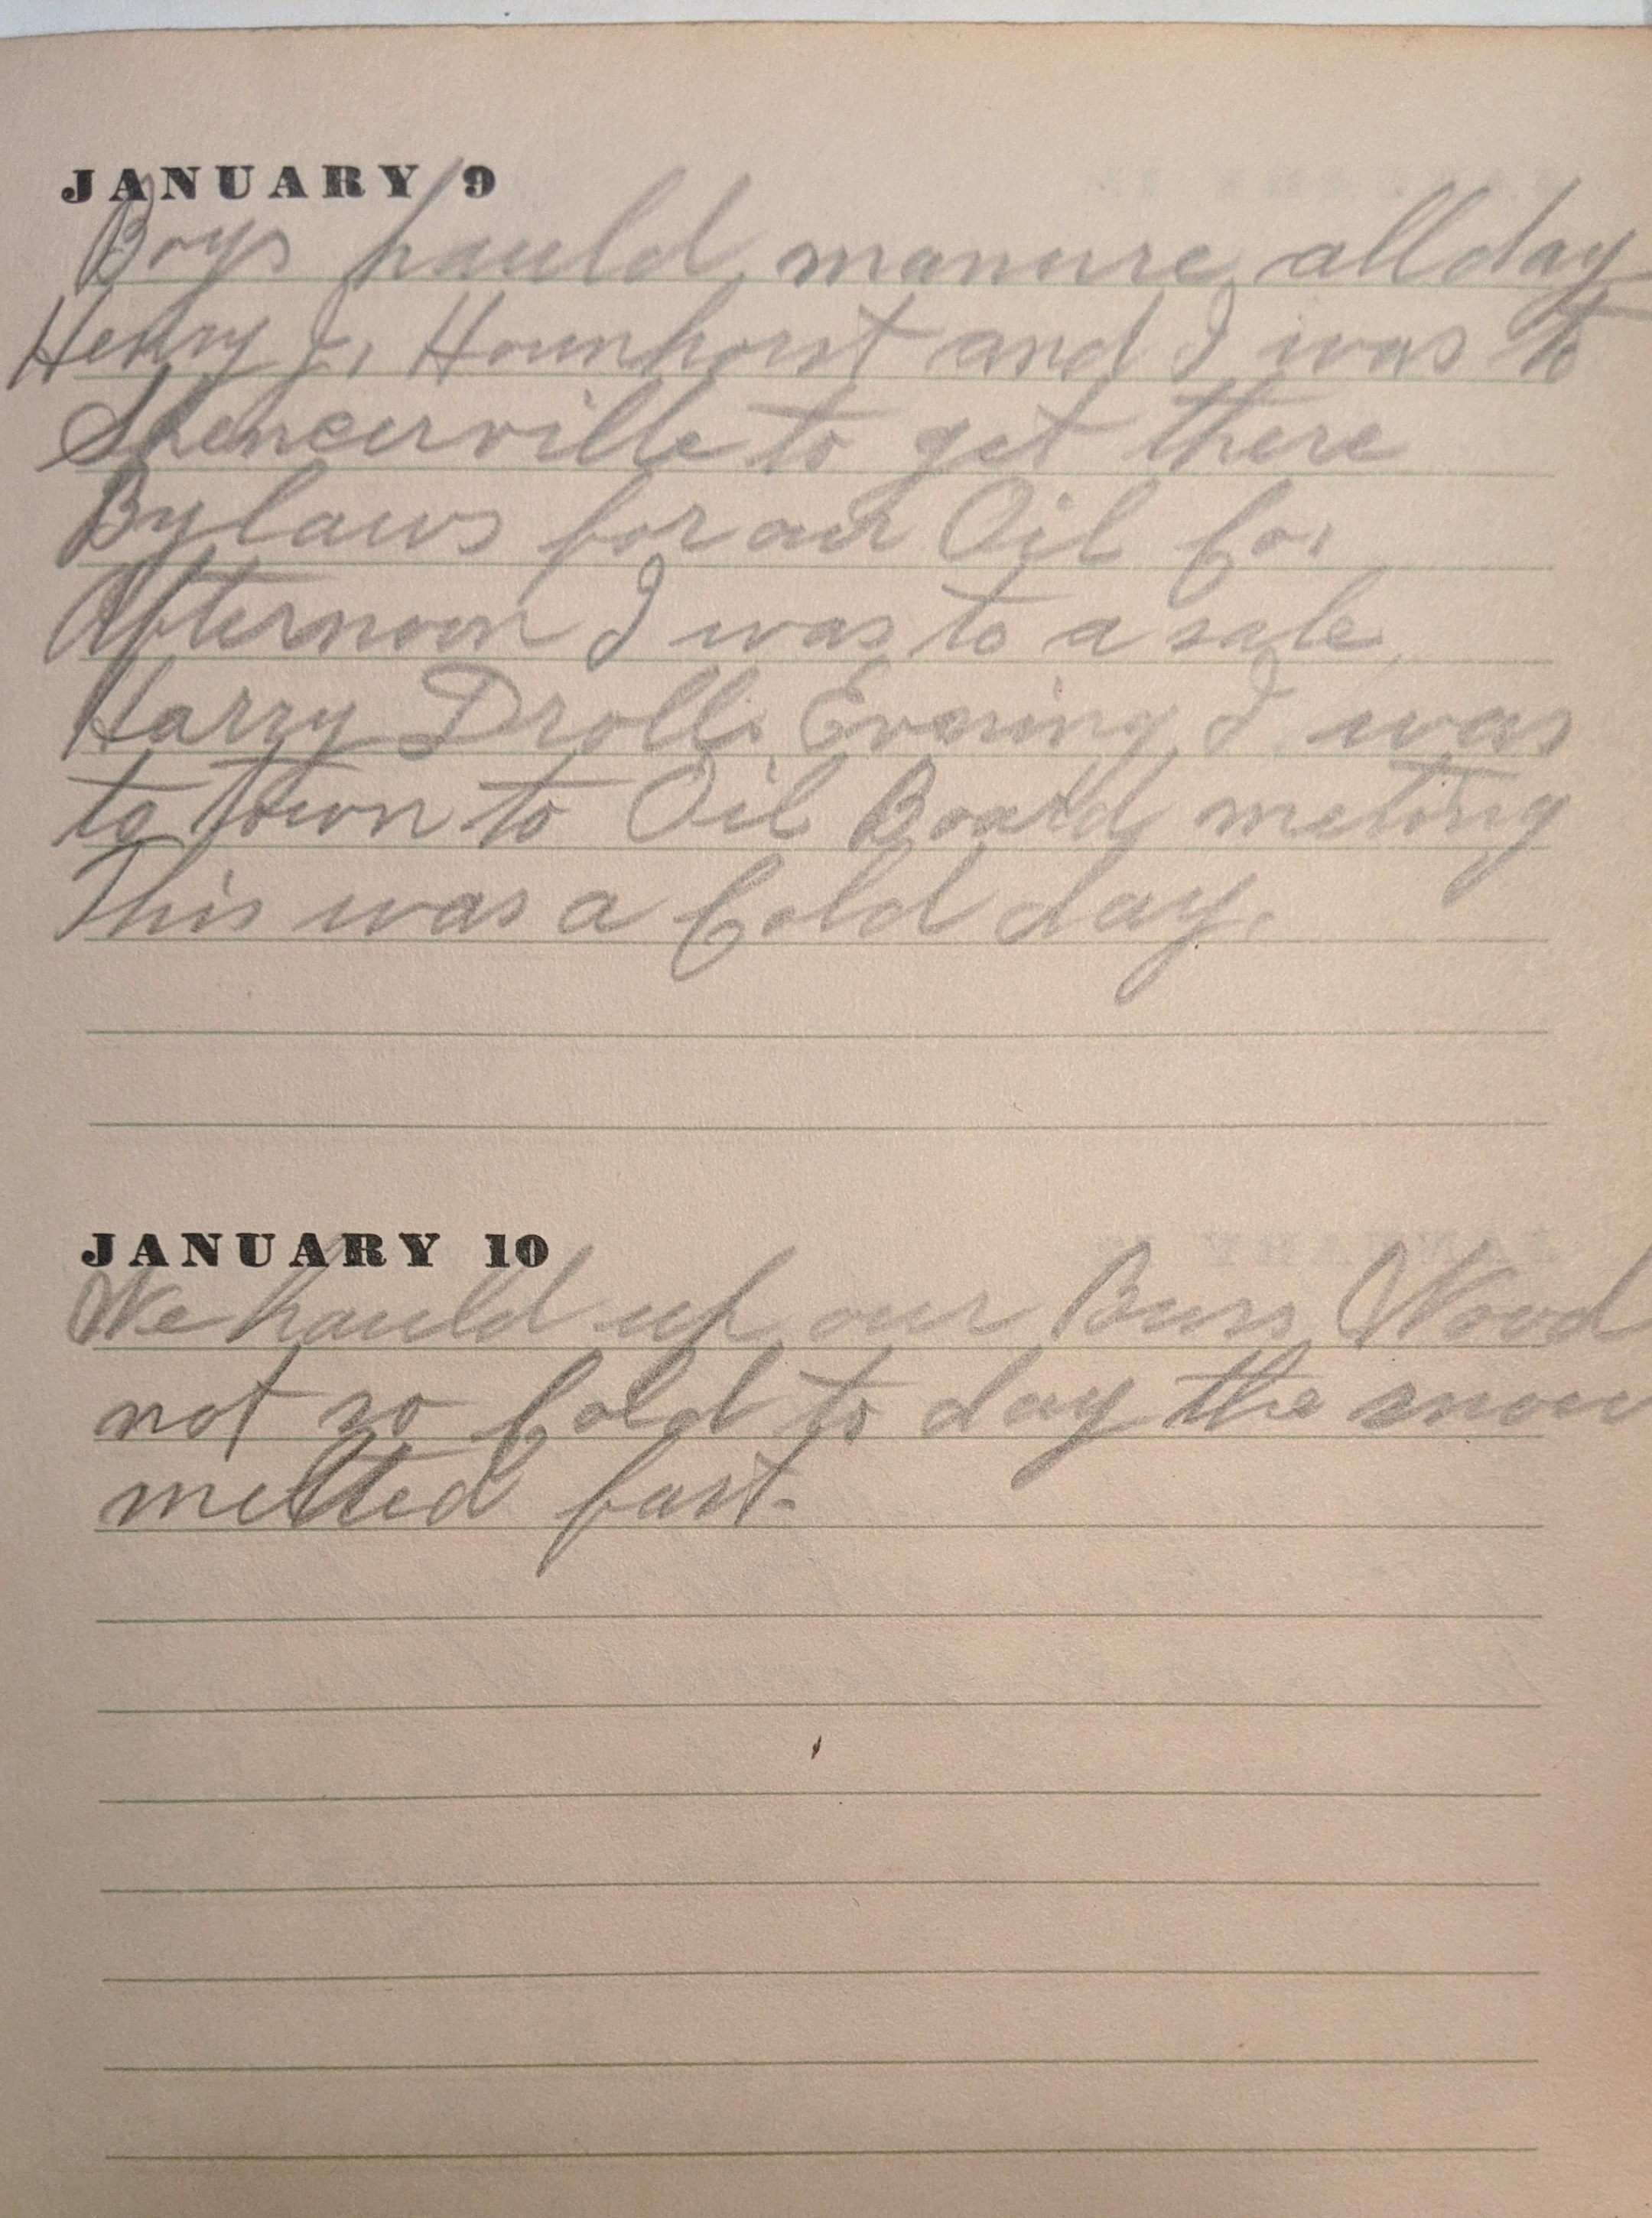 JANUARY 9
Boys hauld manure all day
Henry J, Hounhorst and I was to
Spencerville to get there
By laws for our Oil Co,
Afternoon I was to a sale
Harry Droll. Evening I was
to town to Oil Board meting
This was a Cold day.
JANUARY 10
We hauld up our Buss Wood
not so Cold to day the snow
melted fast.